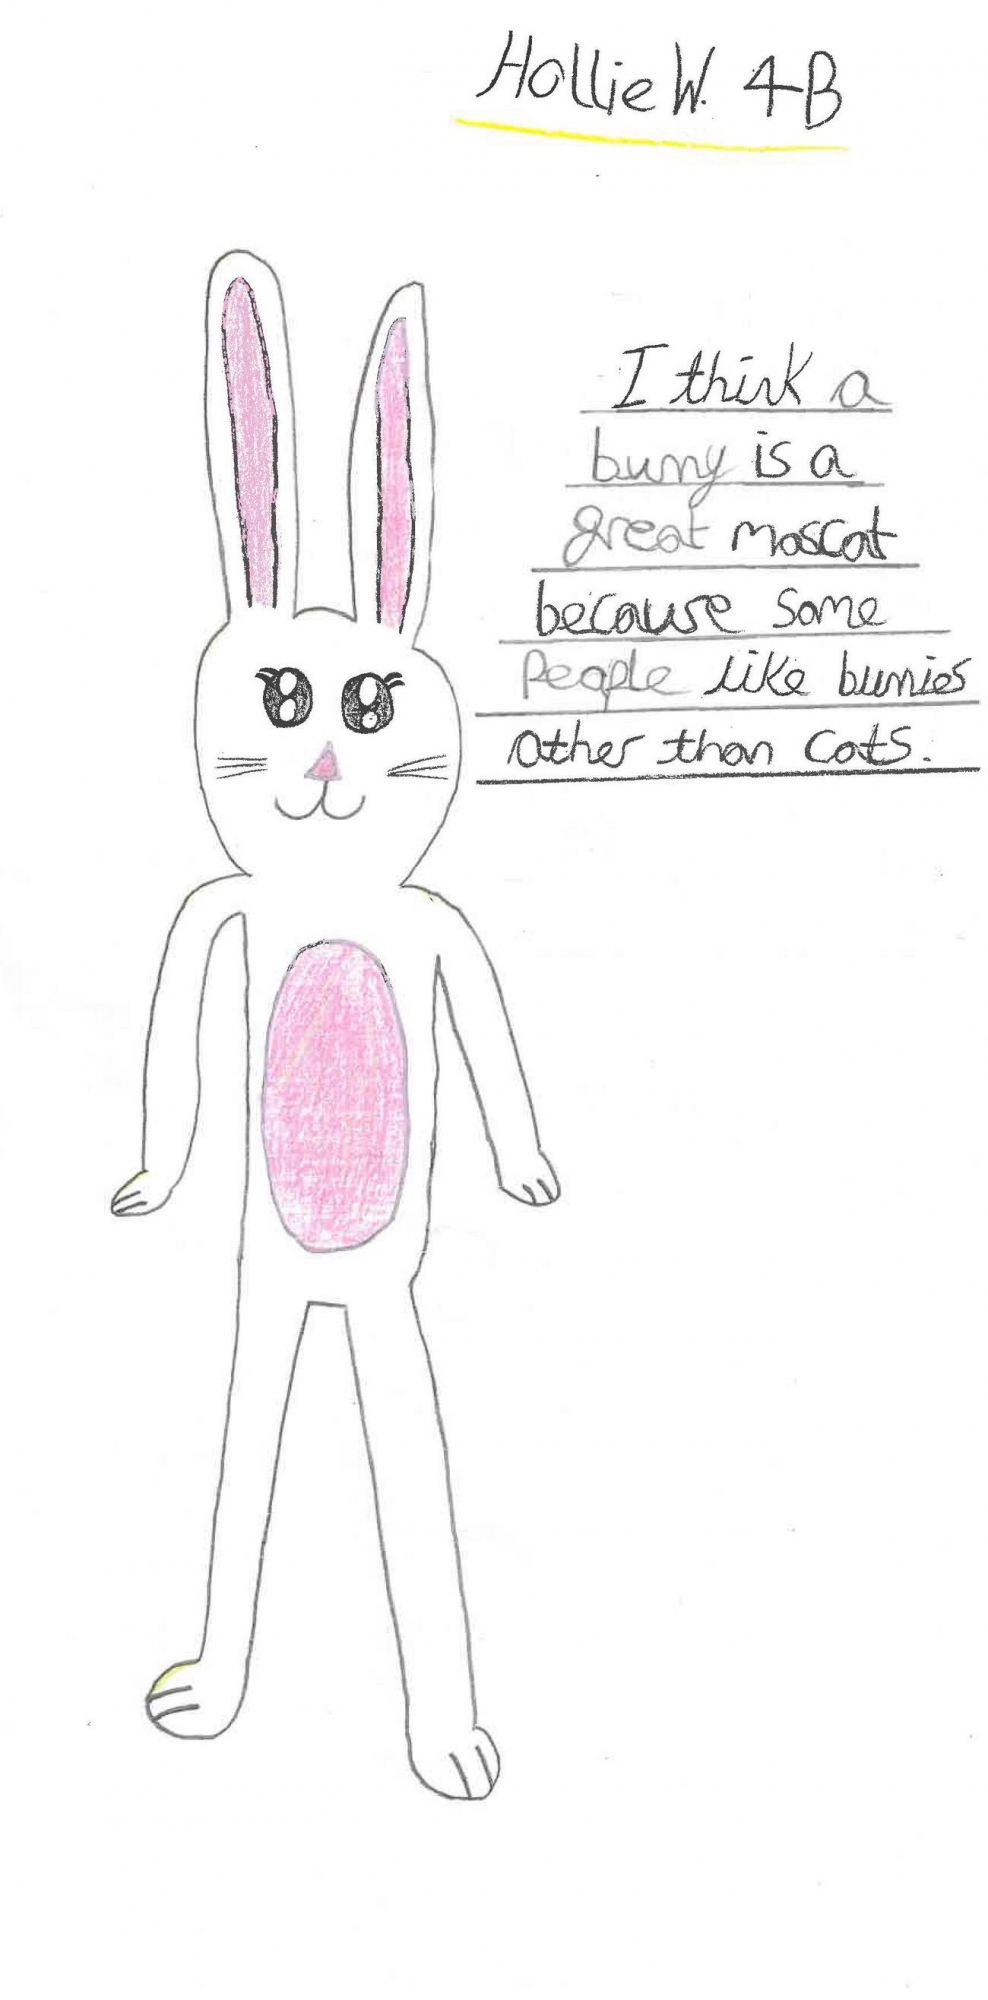 Hollie W. 4B
I think a
bunny is a
great mascat
because some
People like bunnies
other than cats.